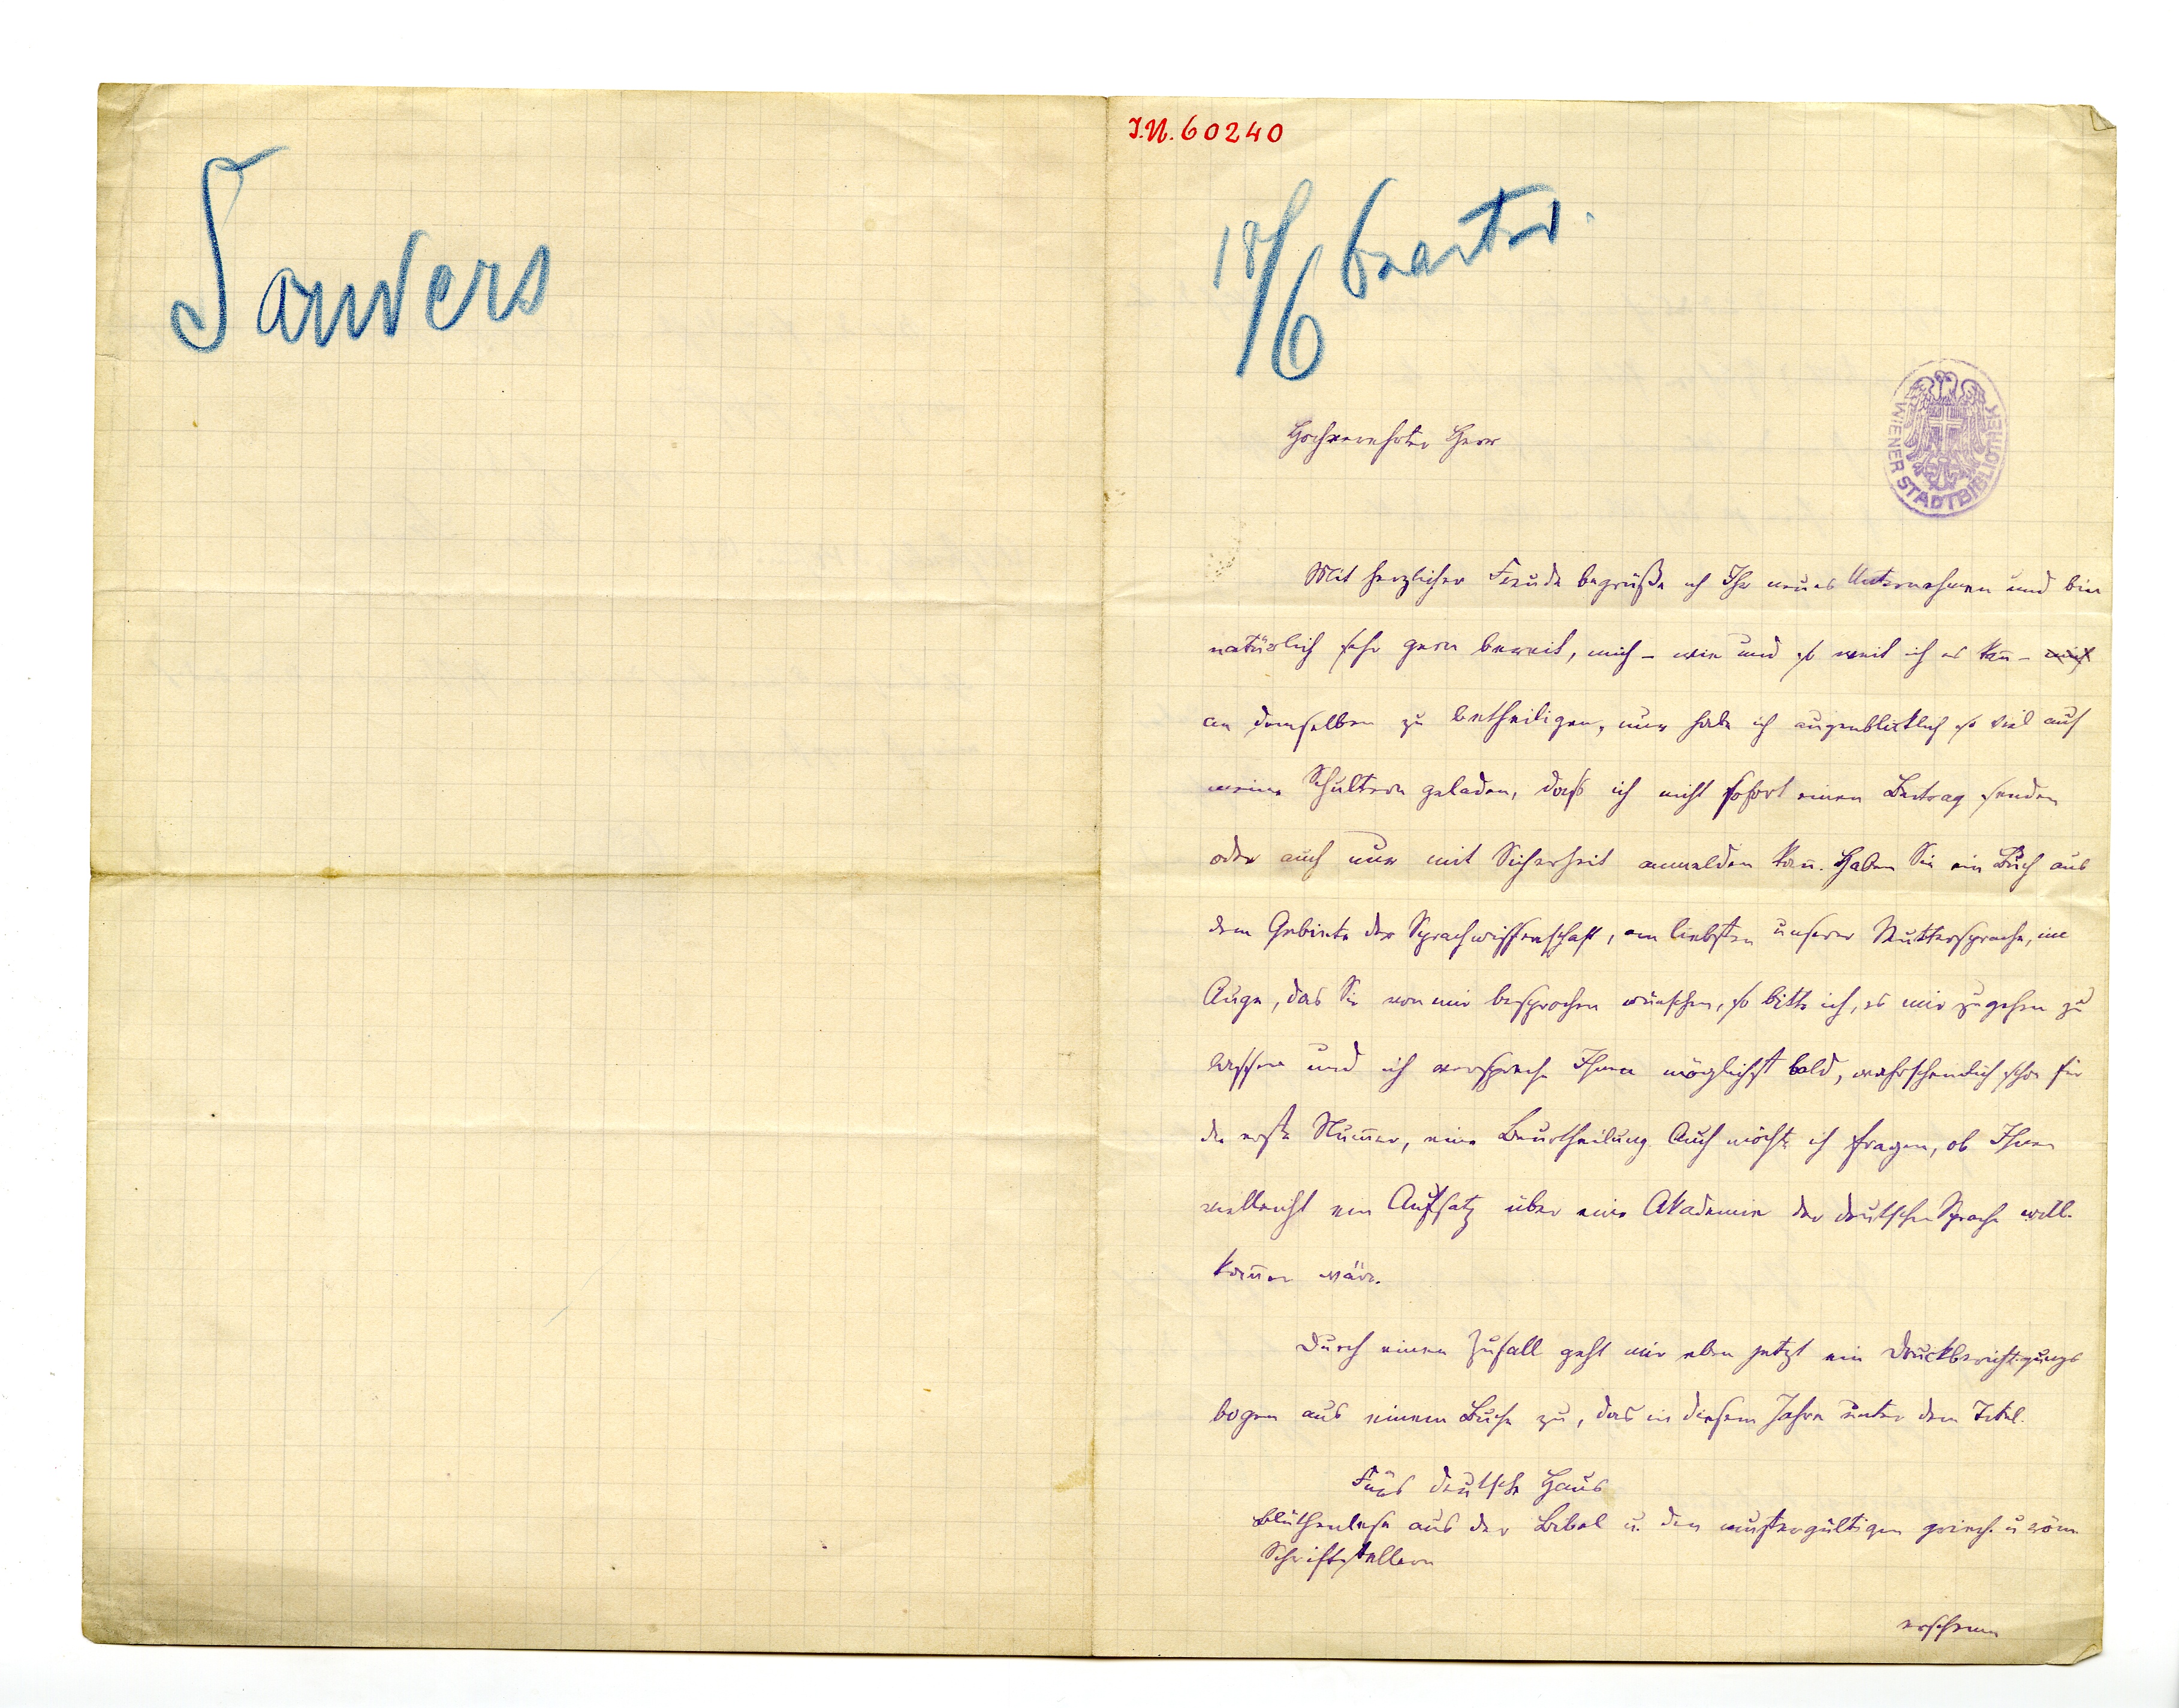 Sanders
I.N. 60240
18/6 beantw.
WIENER STADTBIBLIOTHEK
Hochverehrter Herr
Mit herzlicher Freude begrüße ich Ihr neues Unternehmen und bin
natürlich sehr gern bereit, mich – wie und so weit ich es kan̄ – mich
an demselben zu betheiligen, nur habe ich augenblicklich so viel auf
meine Schultern geladen, daß ich nicht sofort einen Beitrag senden
oder auch nur mit Sicherheit anmelden kan̄. Haben Sie ein Buch aus
dem Gebiete der Sprachwissenschaft, am liebsten unserer Muttersprache, im
Auge, das Sie von mir besprochen wünschen, so bitte ich, es mir zugehen zu
lassen und ich verspreche Ihnen möglichst bald, wahrscheinlich schon für
die erste Num̄er, eine Beurtheilung. Auch möchte ich fragen, ob Ihnen
vielleicht ein Aufsatz über eine Akademie der deutschen Sprache will-
kom̄en wäre.
Durch einen Zufall geht mir eben jetzt ein Druckberichtigungs
bogen aus einem Buche zu, das in diesem Jahre unter dem Titel.
Fürs deutsche Haus
Blüthenlese aus der Bibel u. den mustergültigen griech. u röm.
Schriftstellern
erscheinen